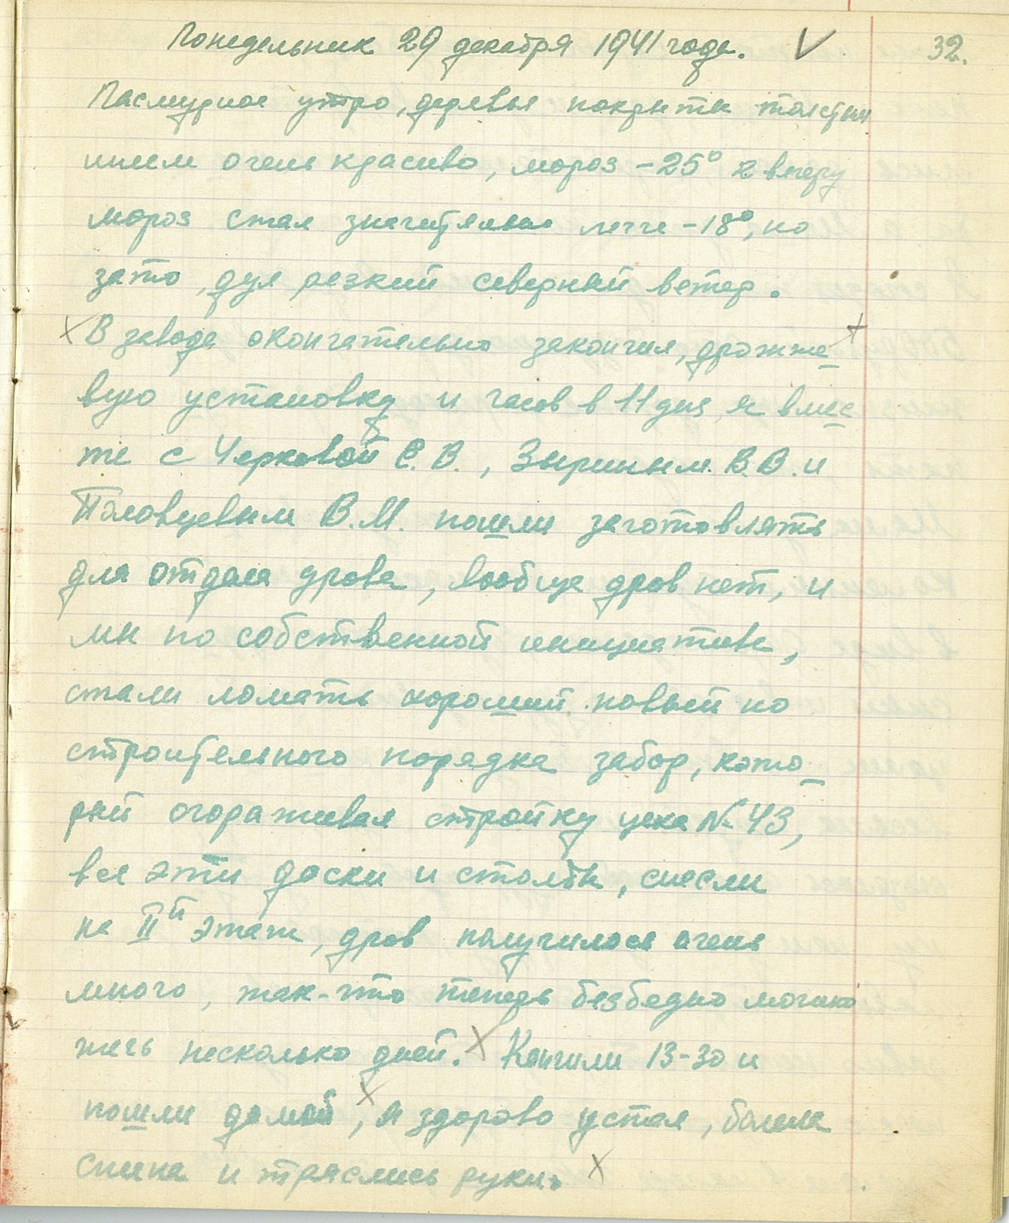 Понедельник 29 декабря 1941 года. 32.
Пасмурное утро, деревья покрыты толстым
инеем очень красиво, мороз -25° к вечеру
мороз стал значительно легче -18°, но
зато, дул резкий северный ветер.
В заводе окончательно закончил, дрожже-
вую установку и часов в 11 дня, я вмес
те с Черковой Е.В., Зыриным В.В. и
Половцевым В.М. пошли заготовлять
для отдела дрова, вообще дров нет, и
мы по собственной инициативе,
стали ломать хороший новый по
строительного порядка забор, кото-
рый огораживал стройку цеха № 43,
все эти доски и столбы, снесли
на II й этаж, дров получилось очень
много, так-что теперь безбедно можно
жечь несколько дней. Кончили 13-30 и
пошли домой, я здорово устал, болела
спина и тряслись руки.